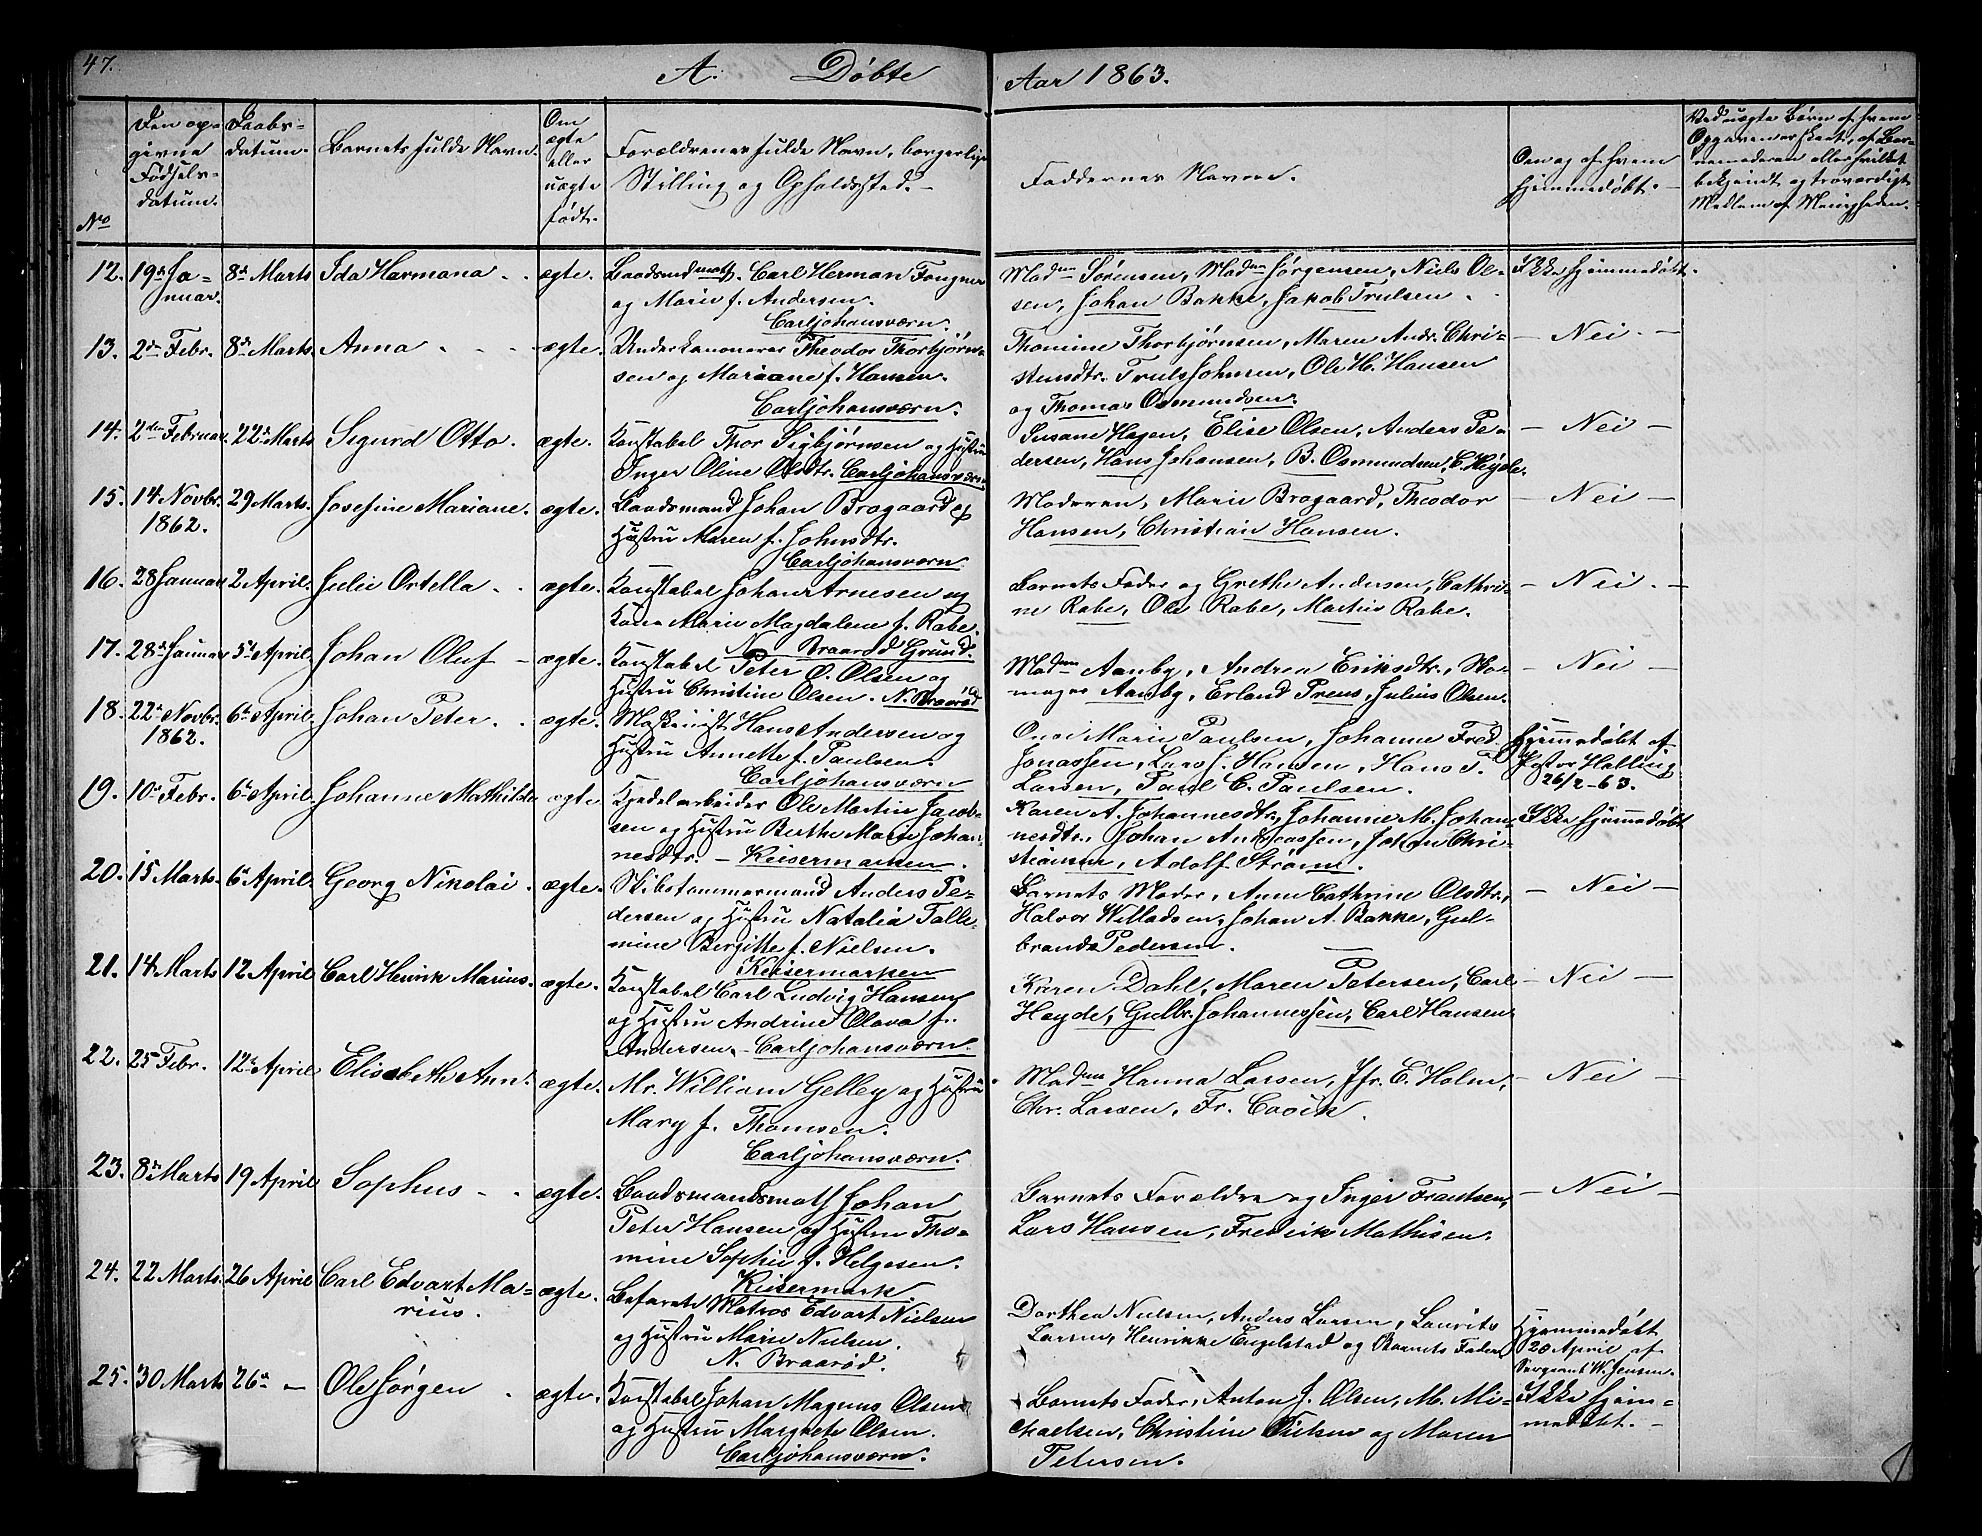 47.
A. Døbte
Aar 1863.
No
Den op-
givne
Fødsels-
datum.
Daabs-
datum.
Barnets fulde Navn.
Om
ægte
eller
uægte
født.
Forældrenes fulde Navn, borgerlige
Stilling og Opholdssted. –
Faddernes Navne.
Om og af hvem
hjemmedøbt. –
Ved uægte Børn af hvem
Opgaven er skeet, af Bar-
nemoderen eller hvilket
bekjendt og troværdigt
Medlem af Menigheden.
12. 19de Ja-
nuar.
8de Marts
Ida Harmana
ægte.
Baadsmdmath. Carl Herman
og Marie f. Andersen.
Carljohansværn.
Madm Sørensen, Madm Jørgensen, Niels Ol-
sen, Johan Bakke, Jakob Trulsen.
Ikke hjemmedøbt.
13. 2den Febr. 8de Marts. Anna
ægte.
Underkanoneer Theodor Thorbjørn-
sen og Mariane f. Hansen.
Carljohansværn.
Thomine Thorbjørnsen, Maren Andr. Chri-
stensdtr. Truls Johnsen, Ole H. Hansen
og Thomas Osmundsen.
– Nei. –
14. 2den Februar. 22de Marts Sigurd Otto.
ægte.
Konstabel Thor Sigbjørnsen og Hustru
Inger Oline Olsdtr. Carljohansværn
Susane Hagen, Elise Olsen, Anders Pe-
dersen, Hans Johansen, B. Osmundsen, C. Heyde.
– Nei –
15. 14 Novbr.
1862.
29 Marts. Josefine Mariane.
ægte.
Baadsmand Johan Brogaard og
Hustru Maren f. Johnsdtr.
Carljohansværn
Moderen, Marie Brogaard, Theodor
Hansen, Christian Hansen.
– Nei –
16. 28 Januar 2 April. Julie Ortella
ægte.
Konstabel Johan Arnesen og
Kone Marie Magdalene f. Rabe.
N. Braarød Grund.
Barnets Fader og Grethe Andersen, Cathri-
ne Rabe, Ole Rabe, Martin Rabe.
– Nei. –
17. 28de Januar 5te April. Johan Oluf
ægte.
Konstabel Peter O. Olsen og
Hustru Christine Olsen. N. Braarød
Madm Aanby, Andrea Eriksdtr., Sko-
mager Aanby, Erland Preus, Julius Olsen.
– Nei –
18. 22de Novbr.
1862.
6te April. Johan Peter.
ægte.
Maskinist Hans Andersen og
Hustru Annette f. Paulsen.
Carljohansværn
Marie Paulsen, Johanne Fred.
Jonassen, Lars J. Hansen, Hans T.
Larsen, Paul C. Paulsen.
Hjemmedøbt af
Pastor Halling
26/2-63.
19. 10de Febr. 6te April. Johanne Mathilde
ægte.
Kjedelarbeider Ole Martin Jacob-
sen og Hustru Berthe Marie Johan-
nesdtr. – Keisermarken.
Karen A. Johannesdtr., Johanne M. Johan-
nesdtr., Johan Andreassen, Johan Chri-
stiansen, Adolf Strøm.
Ikke hjemmedøbt
20. 15 Marts. 6te April. Georg Nikolai.
ægte.
Skibstømmermand Anders Pe-
dersen og Hustru Natalia Talle-
mine Bergitte f. Nielsen.
Keisermarken
Barnets Moder, Anne Cathrine Olsdtr.,
Halvor Willadsen, Johan A. Bakke, Gul-
brand Pedersen.
– Nei –
21. 14 Marts 12 April Carl Henrik Marius.
ægte.
Konstabel Carl Ludvig Hansen
og Hustru Andrine Olava f.
Andersen. – Carljohansværn.
Karen Dahl, Maren Petersen, Carl
Heyde, Gulbr. Johannessen, Carl Hansen.
– Nei –
22. 25 Febr. 12te April Elisabeth Ann.
ægte.
Mr. William Gelley og Hustru
Mary f. Thomsen.
Carljohansværn.
Madm Hanna Larsen, Jfr. E. Holm,
Chr. Larsen, Fr.
– Nei –
23. 8de Marts 19 April Sophus
ægte.
Baadsmandsmath Johan
Peter Hansen og Hustru Tho-
mine Sophie f. Helgesen.
Keisermark.
Barnets Forældre og Inger Frantsen,
Lars Hansen, Fredrik Mathisen.
– Nei –
24. 22 Marts. 26 April Carl Edvart Ma-
rius.
ægte.
Befarete Matros Edvart Nielsen
og Hustru Marie Nielsen.
N. Braarød.
Dorthea Nielsen, Anders Larsen, Laurits
Larsen, Henrikke Engelstad og Barnets Fader
Hjemmedøbt
20 April af
Sergeant W. Jensen.
25. 30 Marts 26de – Ole Jørgen
ægte.
Konstabel Johan Magnus Olsen
og Hustru Margrete Olsen.
Carljohansværn.
Barnets Fader, Anton J. Olsen, M. Mi-
chaelsen, Christine og Maren
Petersen.
Ikke hjem-
medøbt. –